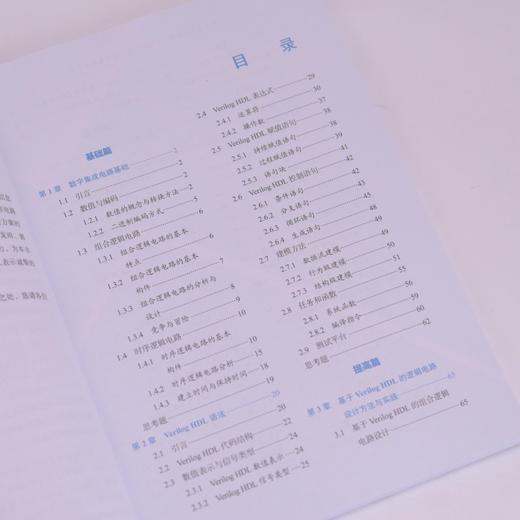 目 录
基础篇
第 1 章 数字集成电路基础 1
1.1 引言 2
1.2 数值与编码 2
1.2.1 数值的概念与转换方法 2
1.2.2 二进制编码方式 5
1.3 组合逻辑电路 6
1.3.1 组合逻辑电路的基本
特点 6
1.3.2 组合逻辑电路的基本
构件 7
1.3.3 组合逻辑电路的分析与
设计 8
1.3.4 竞争与冒险 9
1.4 时序逻辑电路 10
1.4.1 时序逻辑电路的基本
构件 10
1.4.2 时序逻辑电路分析 15
1.4.3 建立时间与保持时间 18
思考题 19
第 2 章 Verilog HDL 语法 20
2.1 引言 20
2.2 Verilog HDL 代码结构 22
2.3 数值表示与信号类型 24
2.3.1 Verilog HDL 数值表示 24
2.3.2 Verilog HDL 信号类型 25
2.4 Verilog HDL 表达式 29
2.4.1 运算符 30
2.4.2 操作数 37
2.5 Verilog HDL 赋值语句 38
2.5.1 持续赋值语句 38
2.5.2 过程赋值语句 38
2.5.3 语句块 41
2.6 Verilog HDL 控制语句 42
2.6.1 条件语句 42
2.6.2 分支语句 45
2.6.3 循环语句 46
2.6.4 生成语句 48
2.7 建模方法 49
2.7.1 数据流建模 49
2.7.2 行为级建模 50
2.7.3 结构级建模 51
2.8 任务和函数 55
2.8.1 系统函数 56
2.8.2 编译指令 56
2.9 测试平台 60
思考题 62
提高篇
第 3 章 基于 Verilog HDL 的逻辑电路
设计方法与实战 65
3.1 基于 Verilog HDL 的组合逻辑
电路设计 65